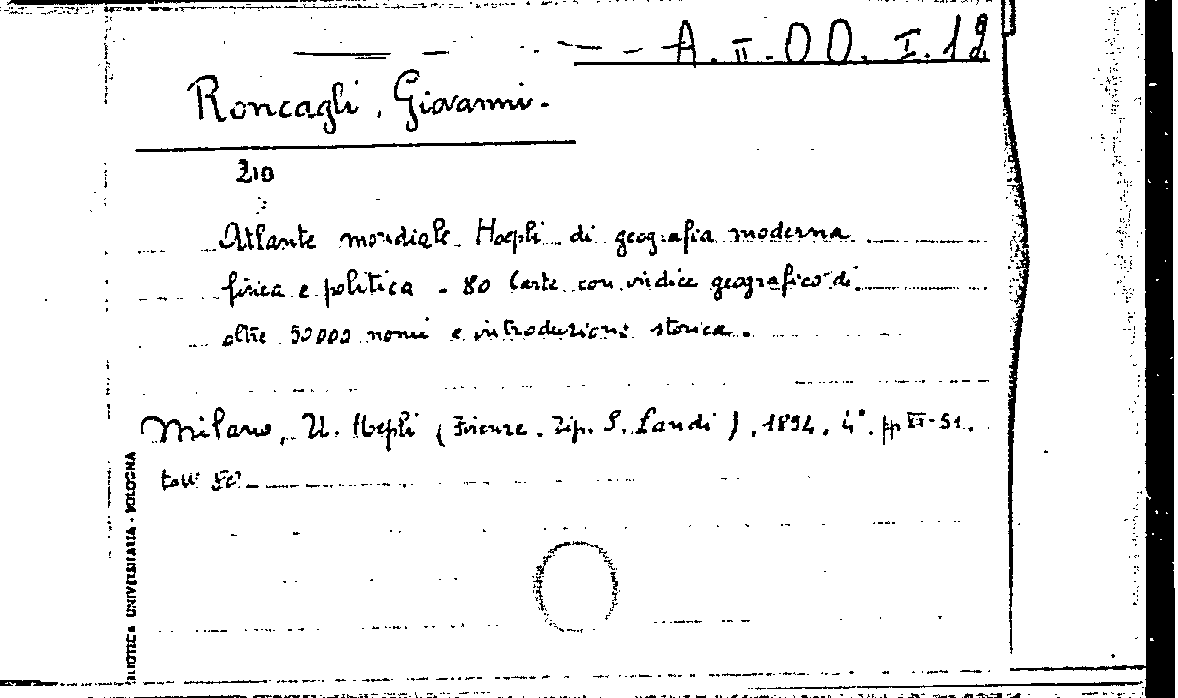 A. II. OO. I. 12
Roncagli, Giovanni.
210
Atlante mondiale Hoepli di geografia moderna
fisica e politica - 80 Carte con indice geografico di
oltre 50000 nomi e introduzione storica.
Milano, U. Hoepli (Firenze. Tip. S. Landi), 1894, 4°. pp VI-51.
tav.
BIBLIOTECA UNIVERSITARIA - BOLOGNA